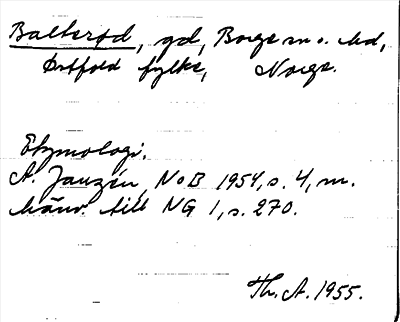 Balterød, gd, Borge sn o. hd,
Østfold fylke, Norge.
Etymologi.
A. Janzén, NoB 1954, s. 4, m.
hänv. till NG 1, s. 270.
Th. A. 1955.